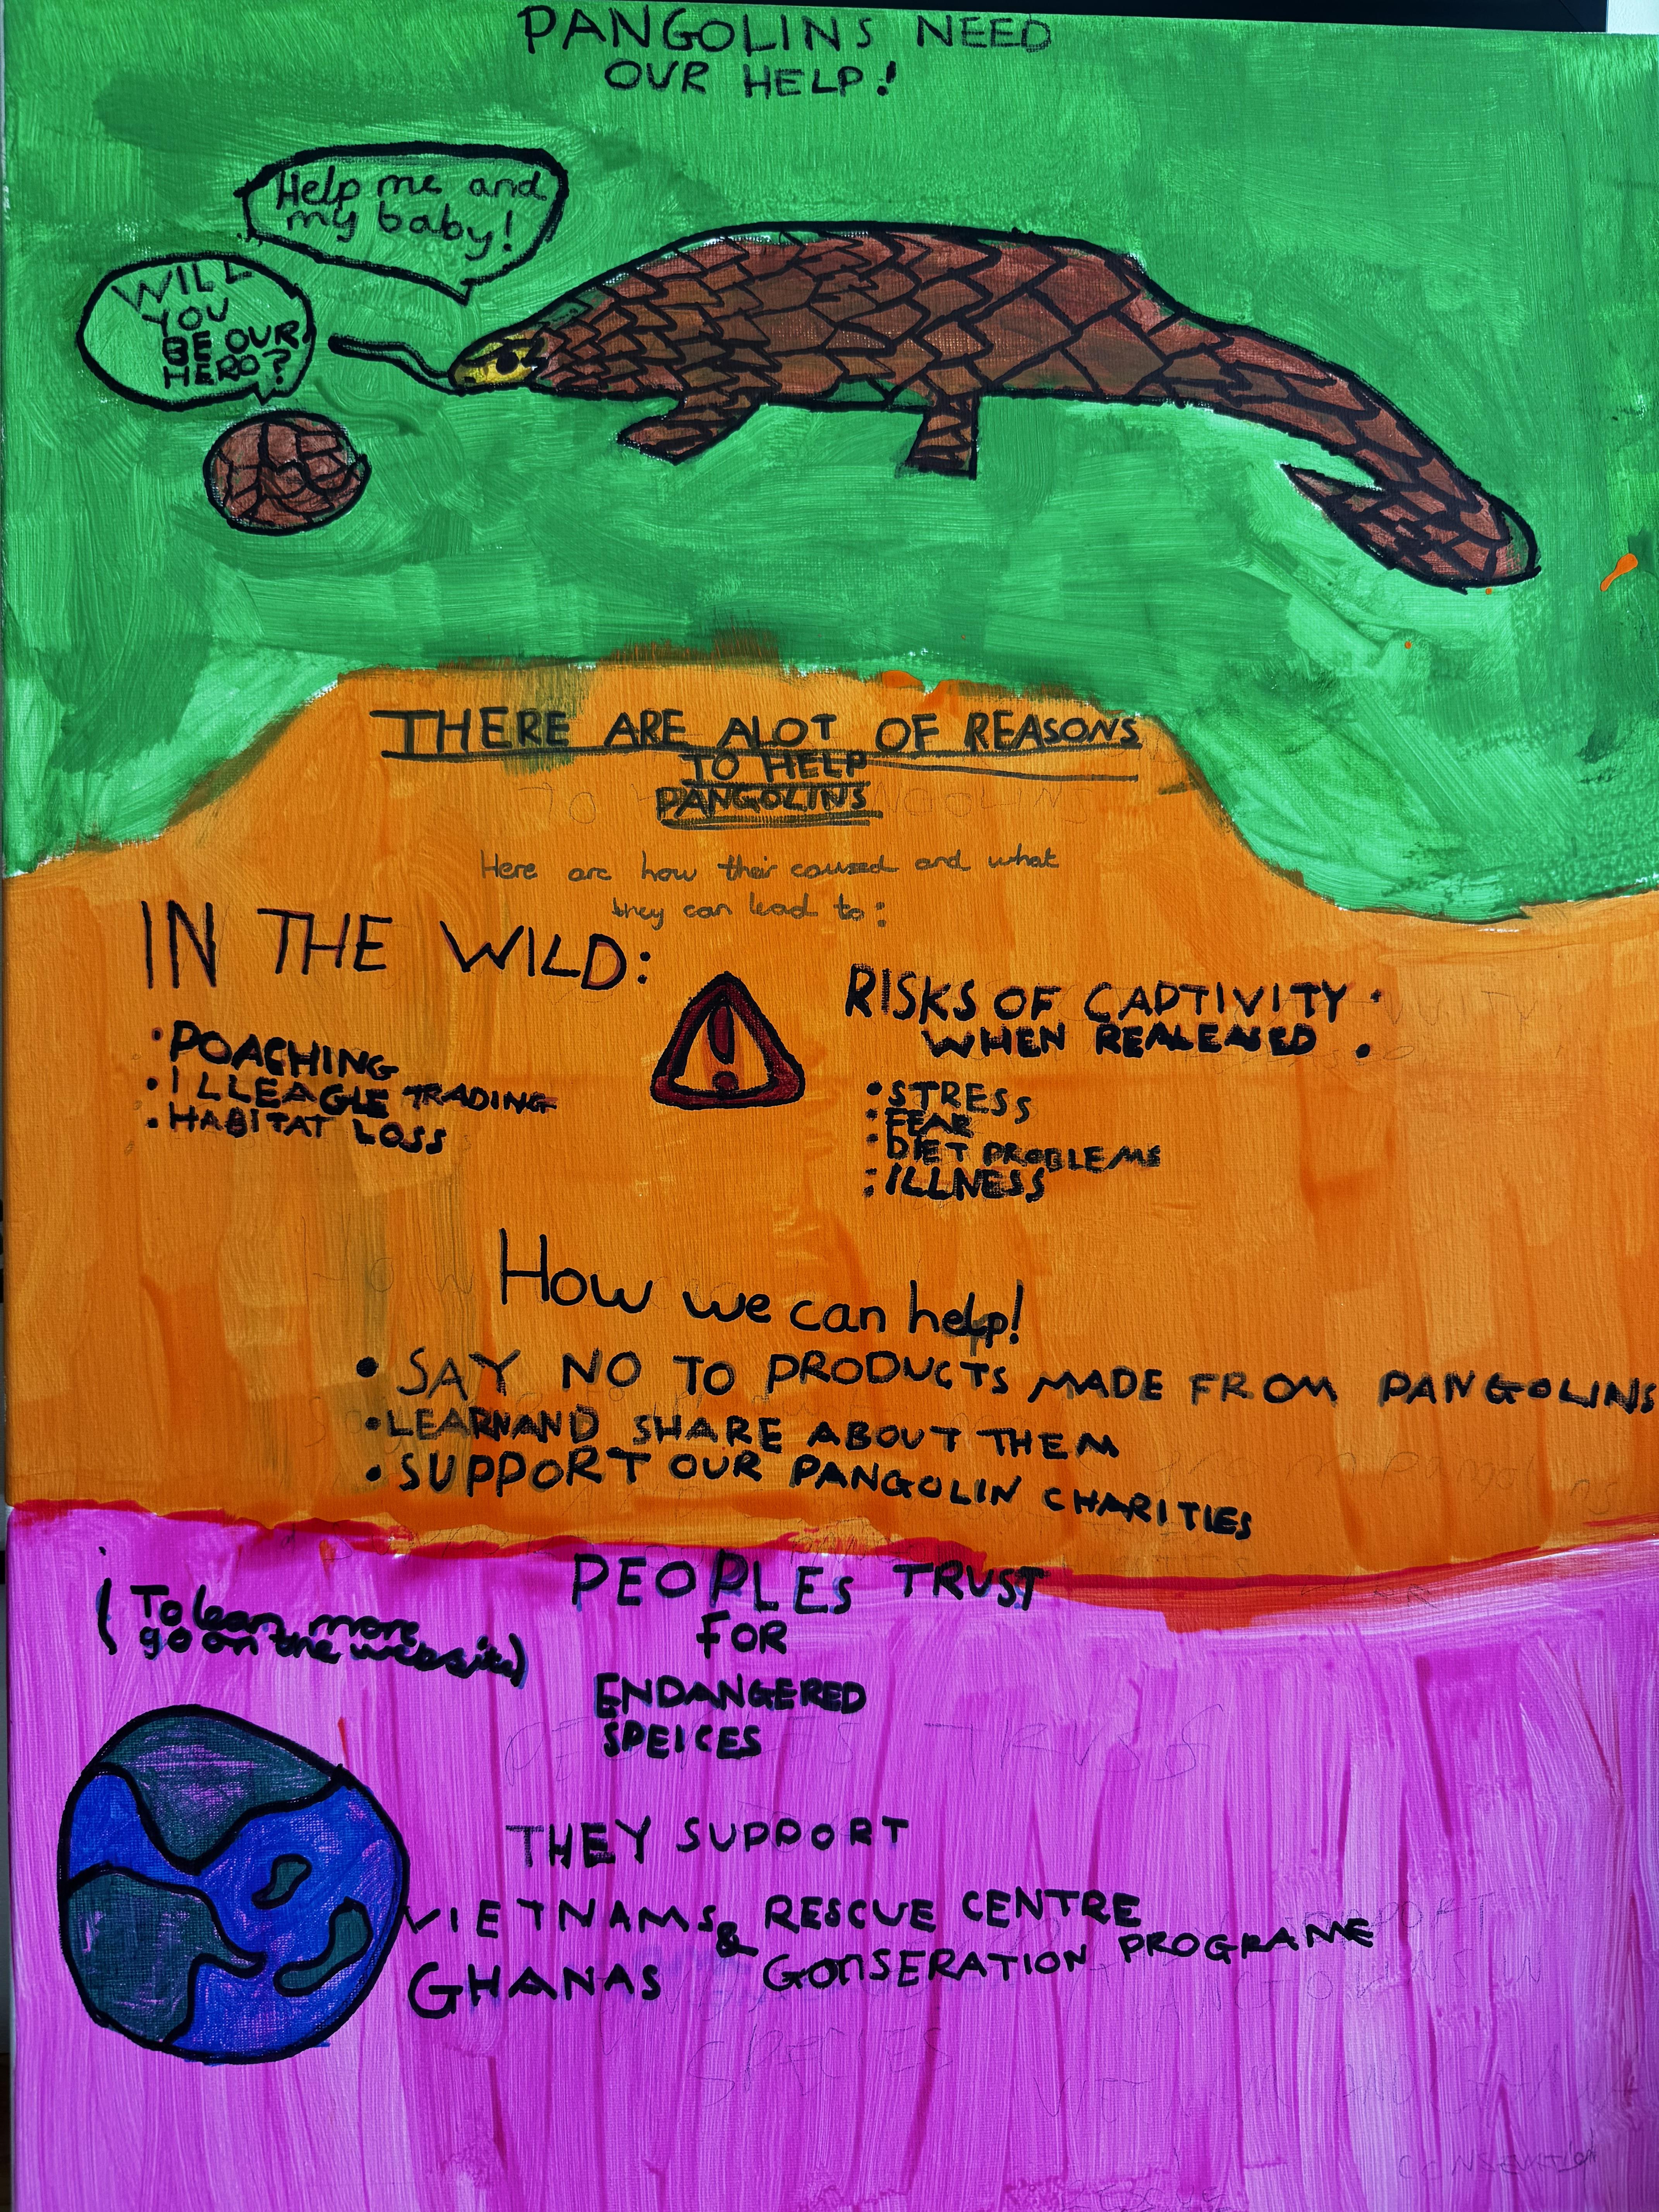 PANGOLINS NEED
OUR HELP!
Help me and
my baby!
WILL
YOU
BE OUR
HERO?
THERE ARE ALOT OF REASONS
TO HELP
PANGOLINS
Here are how their caused and what
they can lead to:
IN THE WILD:
• POACHING
• ILLEAGLE TRADING
• HABITAT LOSS
RISKS OF CAPTIVITY
WHEN REALEASED :
• STRESS
• FEAR
• DIET PROBLEMS
• ILLNESS
How we can help!
• SAY NO TO PRODUCTS MADE FROM PANGOLINS
• LEARN AND SHARE ABOUT THEM
• SUPPORT OUR PANGOLIN CHARITIES
PEOPLES TRUST
FOR
ENDANGERED
SPEICES
(To learn more
go on the website)
THEY SUPPORT
VIETNAMS RESCUE CENTRE
&
GHANAS CONSERATION PROGRAME